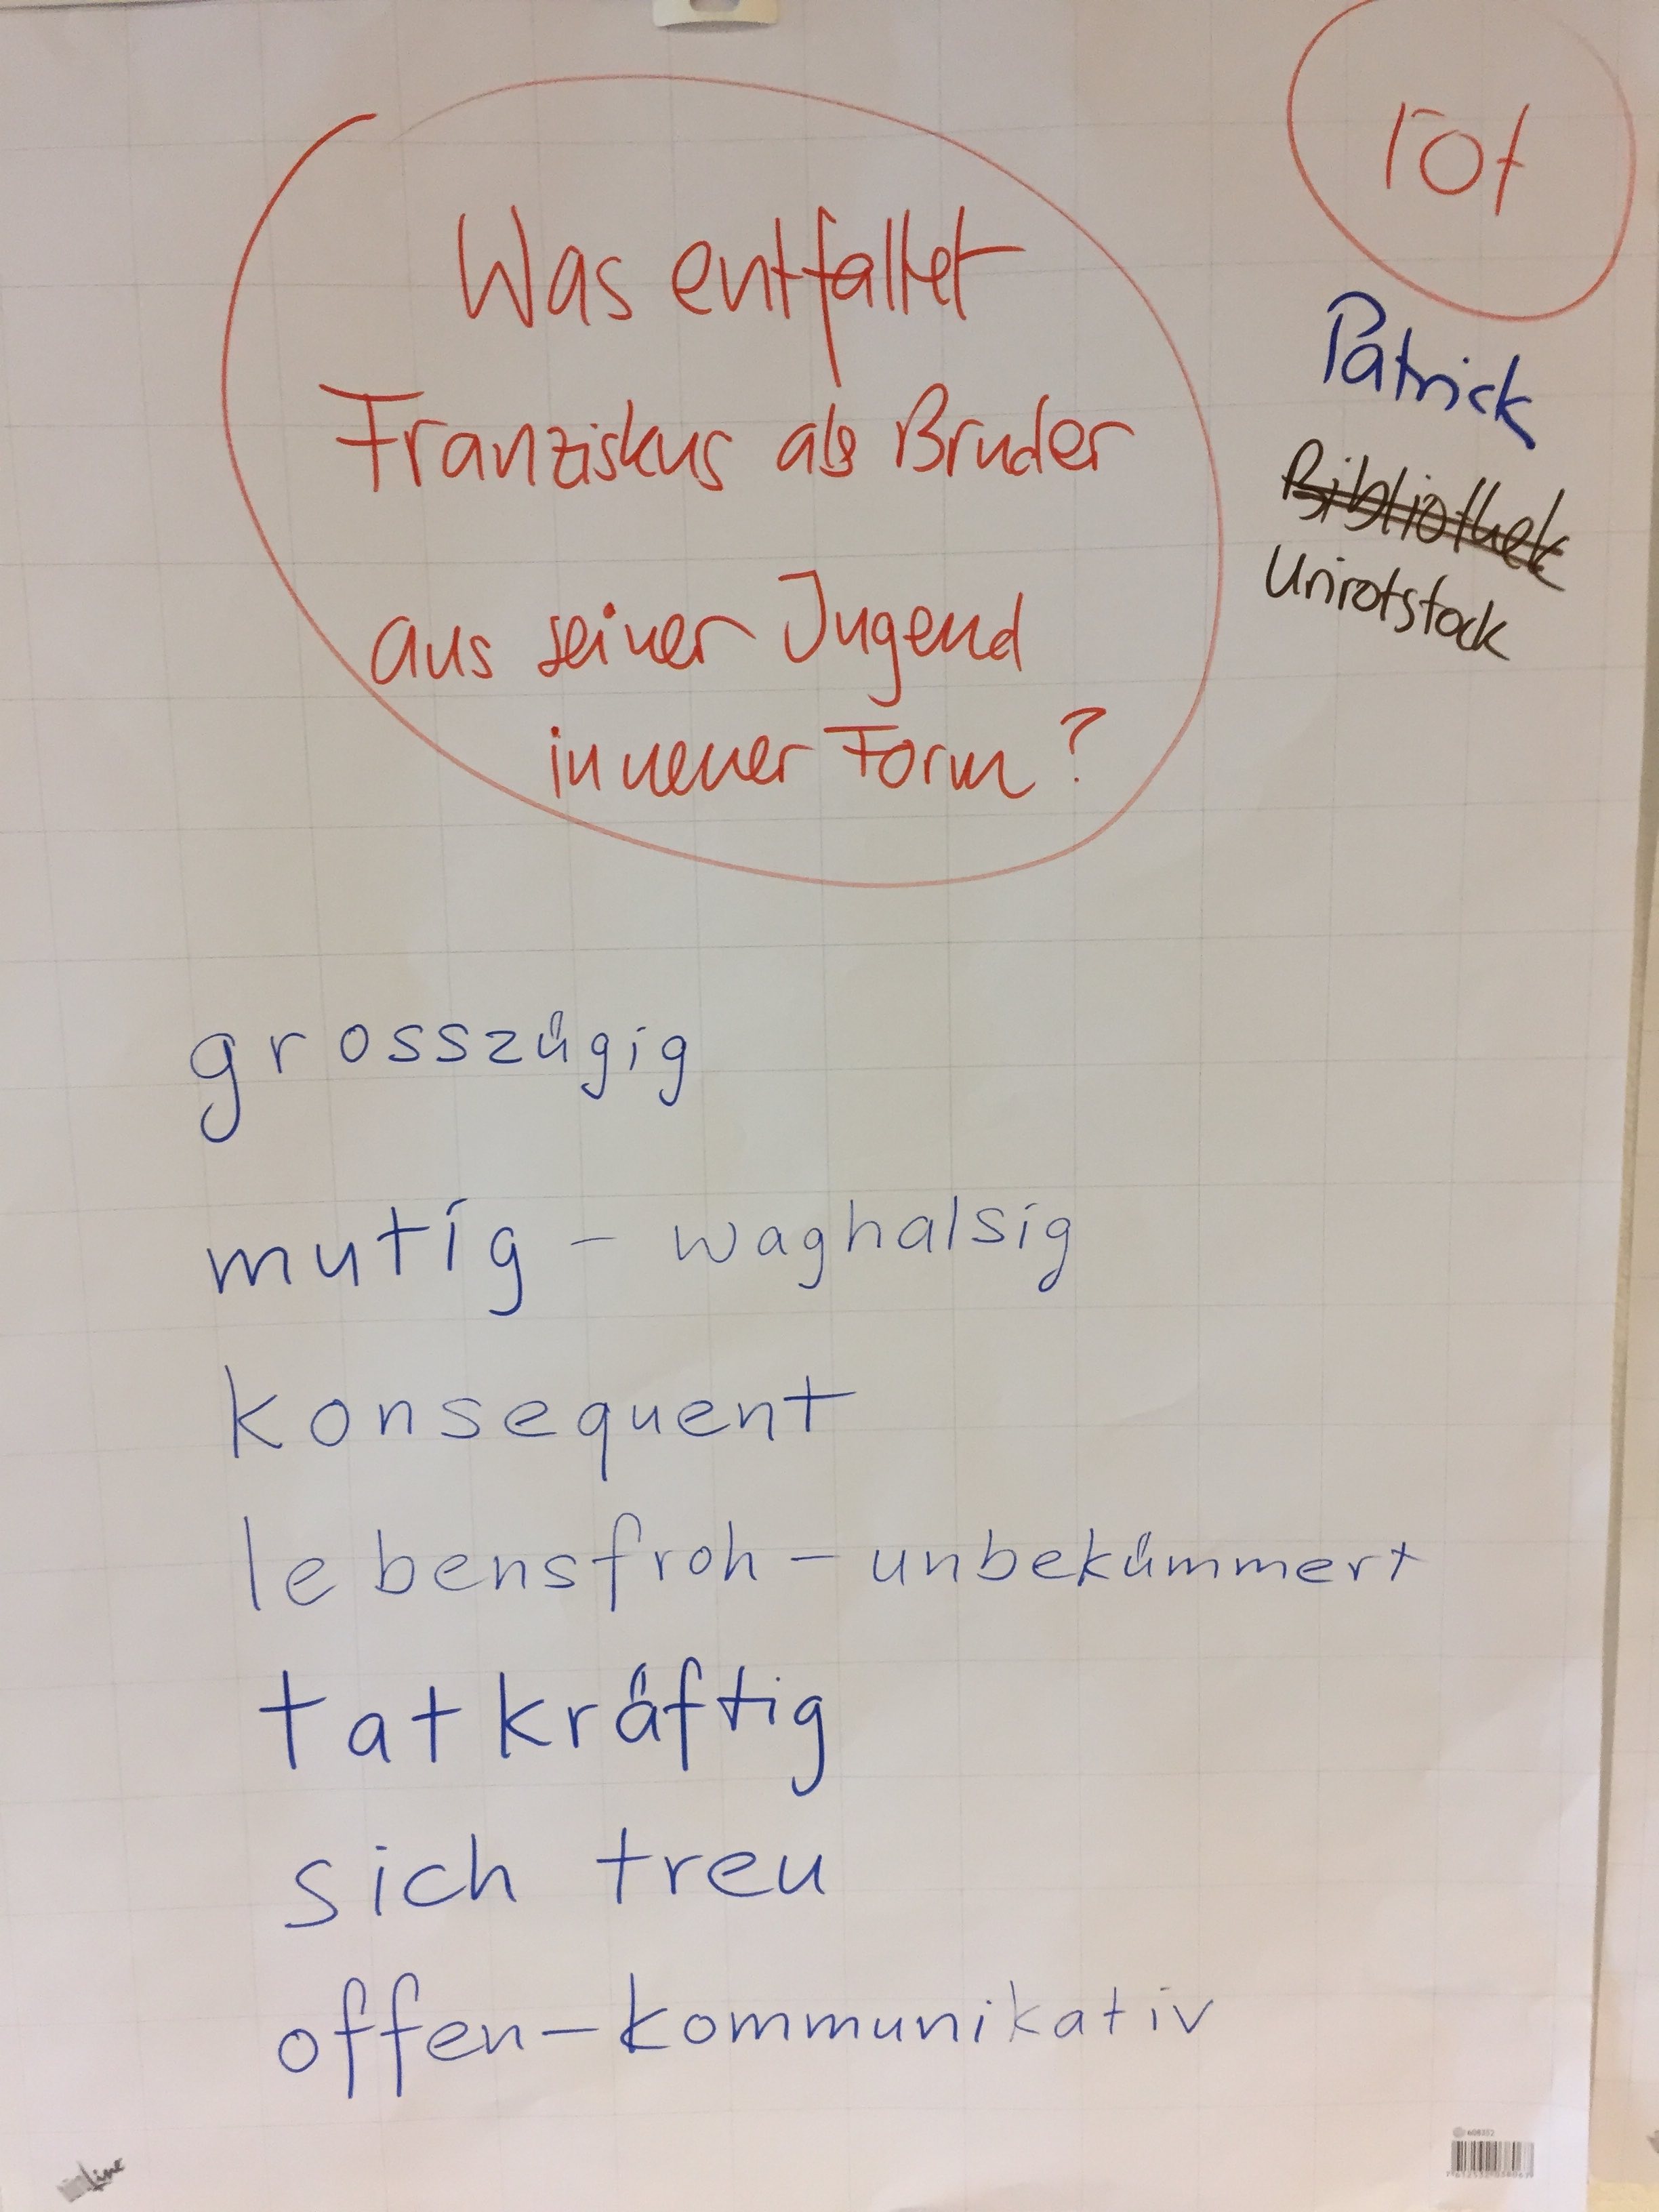 rot
Patrick
Bibliothek
Urirotstock
Was entfaltet
Franziskus als Bruder
aus seiner Jugend
in neuer Form?
grosszügig
mutig – waghalsig
konsequent
lebensfroh – unbekümmert
tatkräftig
sich treu
offen – kommunikativ